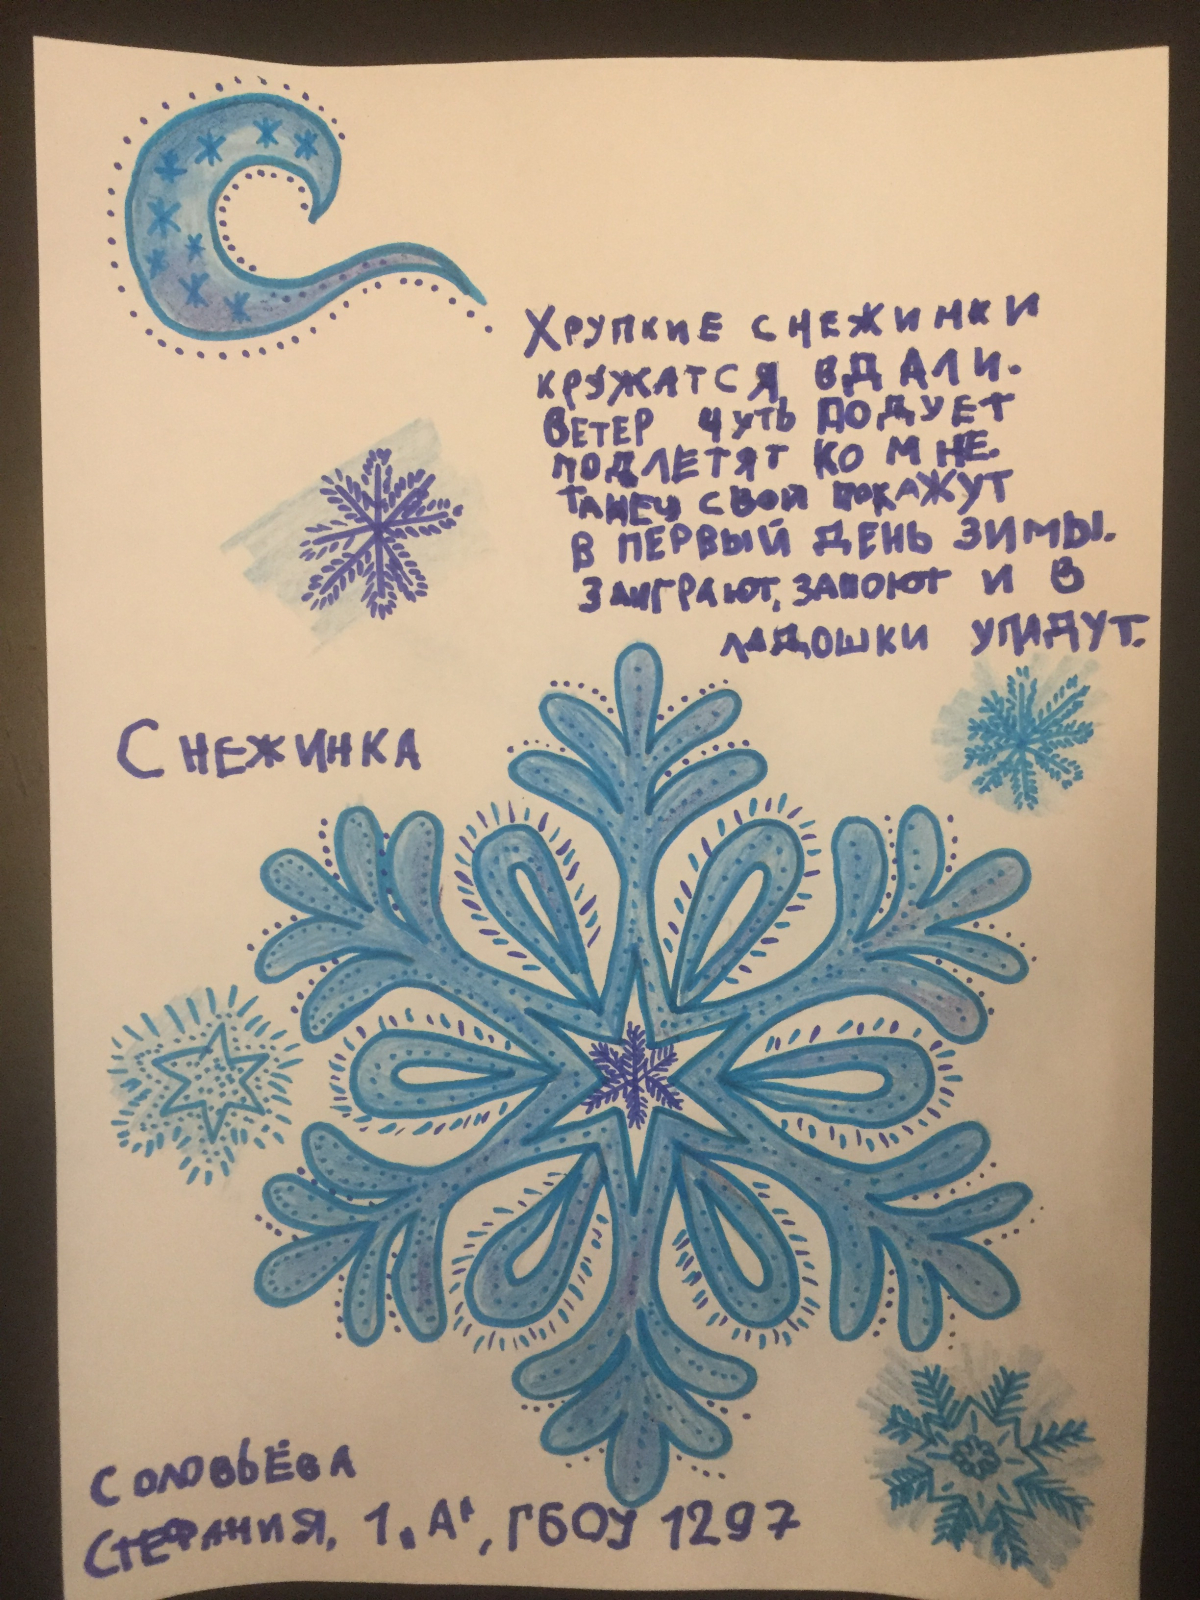 С
Хрупкие снежинки
кружатся вдали.
Ветер чуть подует
подлетят ко мне.
Танец свой покажут
в первый день зимы.
Заиграют, запоют и в
ладошки упадут.
Снежинка
Соловьёва
Стефания, 1 "А", ГБОУ 1297